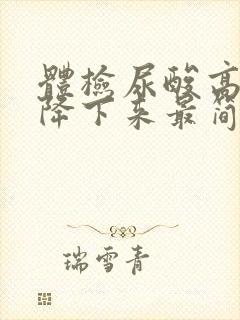 體檢尿酸高
降下来最简
瑞雪青